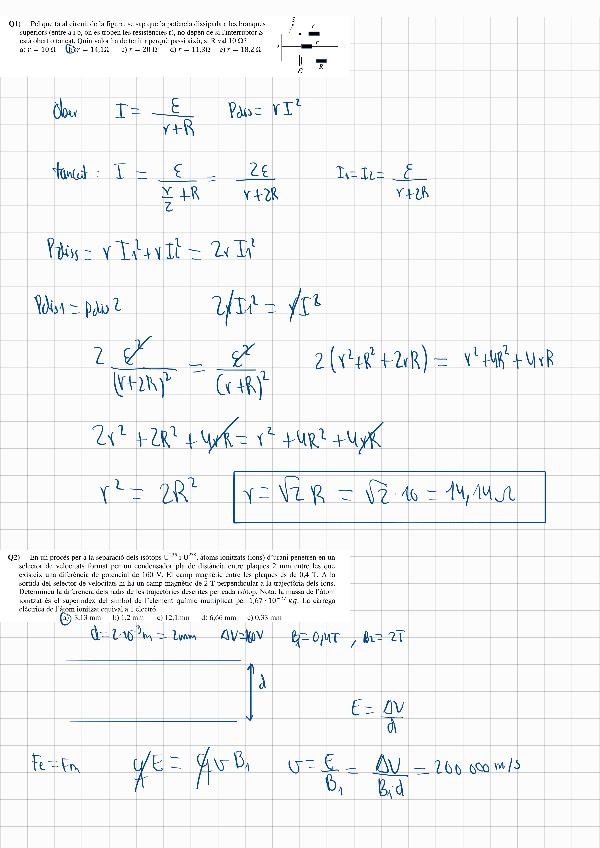 Q1) Pel que fa al circuit de la figura, se sap que la potència dissipada a les branques
superiors (entre a i b, on es troben les resistències r), no depèn de si l'interruptor S
està obert o tancat. Quin valor ha de tenir r perquè passi això, si R val 10 Ω?
a) r = 10 Ω b) r = 14,1Ω c) r = 20 Ω d) r = 11,8Ω e) r = 18,2 Ω
Ober I = ε/(r+R) Pdis = rI²
tancat: I = ε/(r/2 + R) = 2ε/(r+2R) I₁ = I₂ = ε/(r+2R)
Pdiss = r I₁² + r I₂² = 2r I₁²
Pdis1 = Pdis 2 2r I₁² = r I²
2 ε²/(r+2R)² = ε²/(r+R)² 2(r²+R²+2rR) = r²+4R²+4rR
2r² + 2R² + 4rR = r² + 4R² + 4rR
r² = 2R² r = √2 R = √2 · 10 = 14,14 Ω
Q2) En un procés per a la separació dels isòtops U²³⁵ i U²³⁸, àtoms ionitzats (ions) d'urani penetren en un
selector de velocitats format per un condensador pla de distància entre plaques 2 mm entre les que
existeix una diferència de potencial de 160 V. El camp magnètic entre les plaques és de 0,4 T. A la
sortida del selector de velocitats hi ha un camp magnètic de 2 T perpendicular a la trajectòria dels ions.
Determineu la diferència dels radis de les trajectòries descrites per cada isòtop. Nota: la massa de l'àtom
ionitzat és el superíndex del símbol de l'element químic multiplicat per 1,67·10⁻²⁷ kg. La càrrega
elèctrica de l'àtom ionitzat equival a 1 electró.
a) 3,13 mm b) 1,2 mm c) 12,1mm d) 6,66 mm e) 0,33 mm
d = 2·10⁻³m = 2mm ΔV=160V B₁ = 0,4T , B₂ = 2T
d
E = ΔV/d
Fe = Fm qE = qvB₁ v = E/B₁ = ΔV/(B₁d) = 200 000 m/s